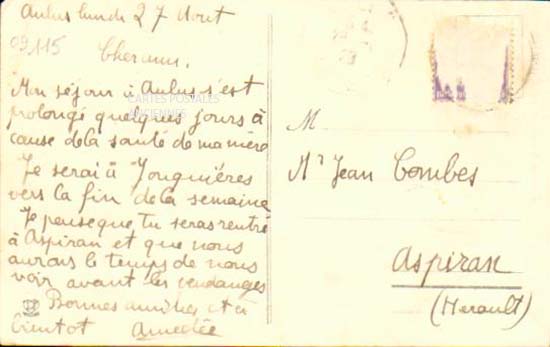 Aulus lundi 27 Aout
09115
Cher ami.
Mon séjour à Aulus s'est
prolongé quelques jours à
CARTES POSTALES
ANCIENNES
cause de la santé de ma mère
Je serai à Jonquières
vers la fin de la semaine
Je pense que tu seras rentré
à Aspiran et que nous
aurons le temps de nous
voir avant les vendanges
Bonnes amitiés et à
bientot Amedée
M
Mr Jean Combes
Aspiran
(Herault)